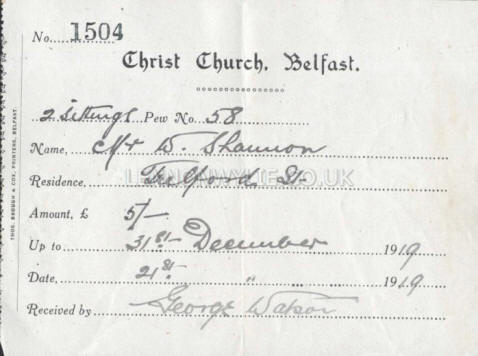 No. 1504
Christ Church, Belfast.
2 Sittings Pew No. 58
Name, Mr W. Shannon
Residence, Telford St.
Amount, £ 5/-
Up to 31st December 1919
Date, 21st " 1919
Received by George Watson